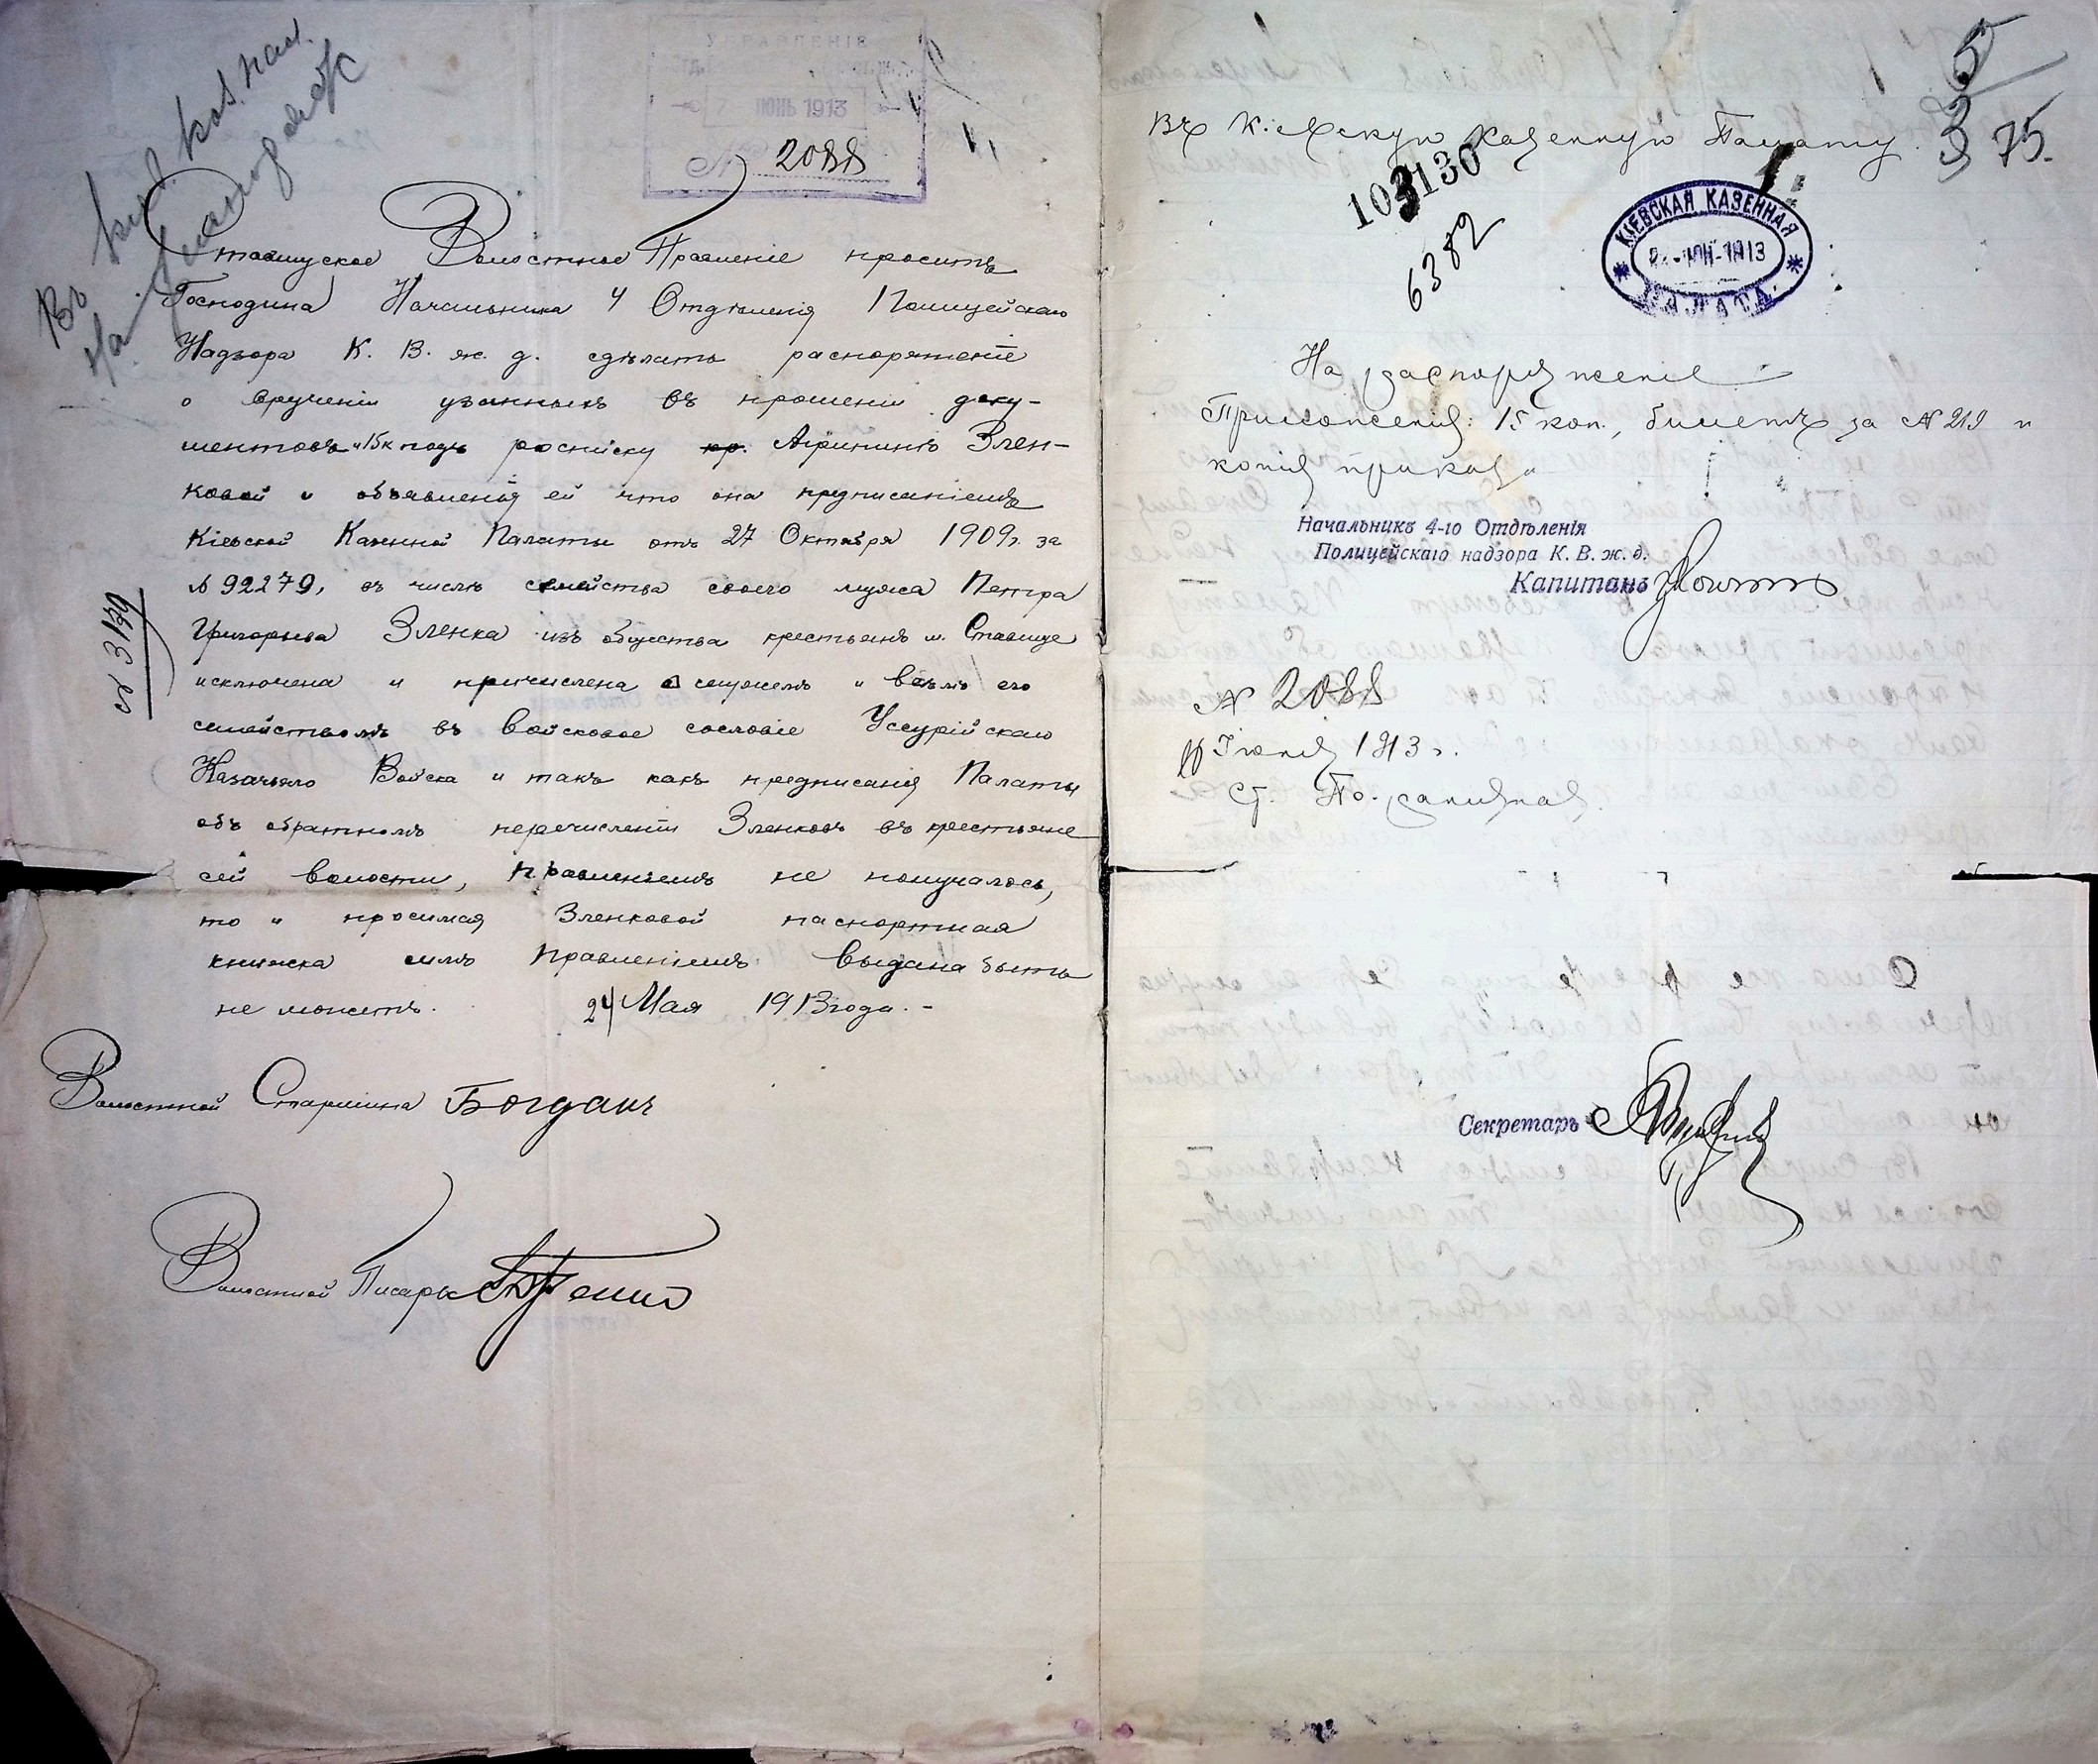 Въ Кіев. каз. пал.
УПРАВЛЕНІЕ
7 ІЮНЬ 1913
№ 2088
Ставищское Волостное Правленіе проситъ
Господина Начальника 4 Отдѣленія Полицейскаго
Надзора К. В. ж. д. сдѣлать распоряженіе
о врученіи указанныхъ въ прошеніи доку-
ментовъ и 15 к подъ росписку кр. Агрипинѣ Злен-
ковой и объявленія ей что она предписаніемъ
Кіевской Казенной Палаты отъ 27 Октября 1909 г. за
№ 92279, въ числѣ семейства своего мужа Петра
Григорьева Зленка изъ общества крестьянъ м. Ставище
исключена и причислена съ мужемъ и всѣмъ его
семействомъ въ войсковое сословіе Уссурійскаго
Казачьяго Войска и такъ какъ предписанія Палаты
объ обратномъ перечисленіи Зленковъ въ крестьяне
сей волости, правленіемъ не получалось,
то и просимая Зленковой паспортная
книжка симъ Правленіемъ выдана быть
не можетъ. 24 Мая 1913 года. -
№ 3179
Волостной Старшина Богданъ
Волостной Писарь
5
3 75.
Въ Кіевскую Казенную Палату.
103130
6382
КІЕВСКАЯ КАЗЕННАЯ
ІЮН 1913
ПАЛАТА
На распоряженіе
Приложенія: 15 коп., билетъ за № 219 и
копія приказа
Начальникъ 4-го Отдѣленія
Полицейскаго надзора К. В. ж. д.
Капитанъ
№ 2088
10 Іюня 1913 г.
Ст.
Секретарь